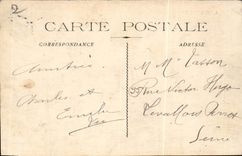 2
CARTE POSTALE
CORRESPONDANCE
ADRESSE
Amitiés
Charles et
M. M. Tasson
35 Rue Victor Hugo
Levallois Perret
Seine